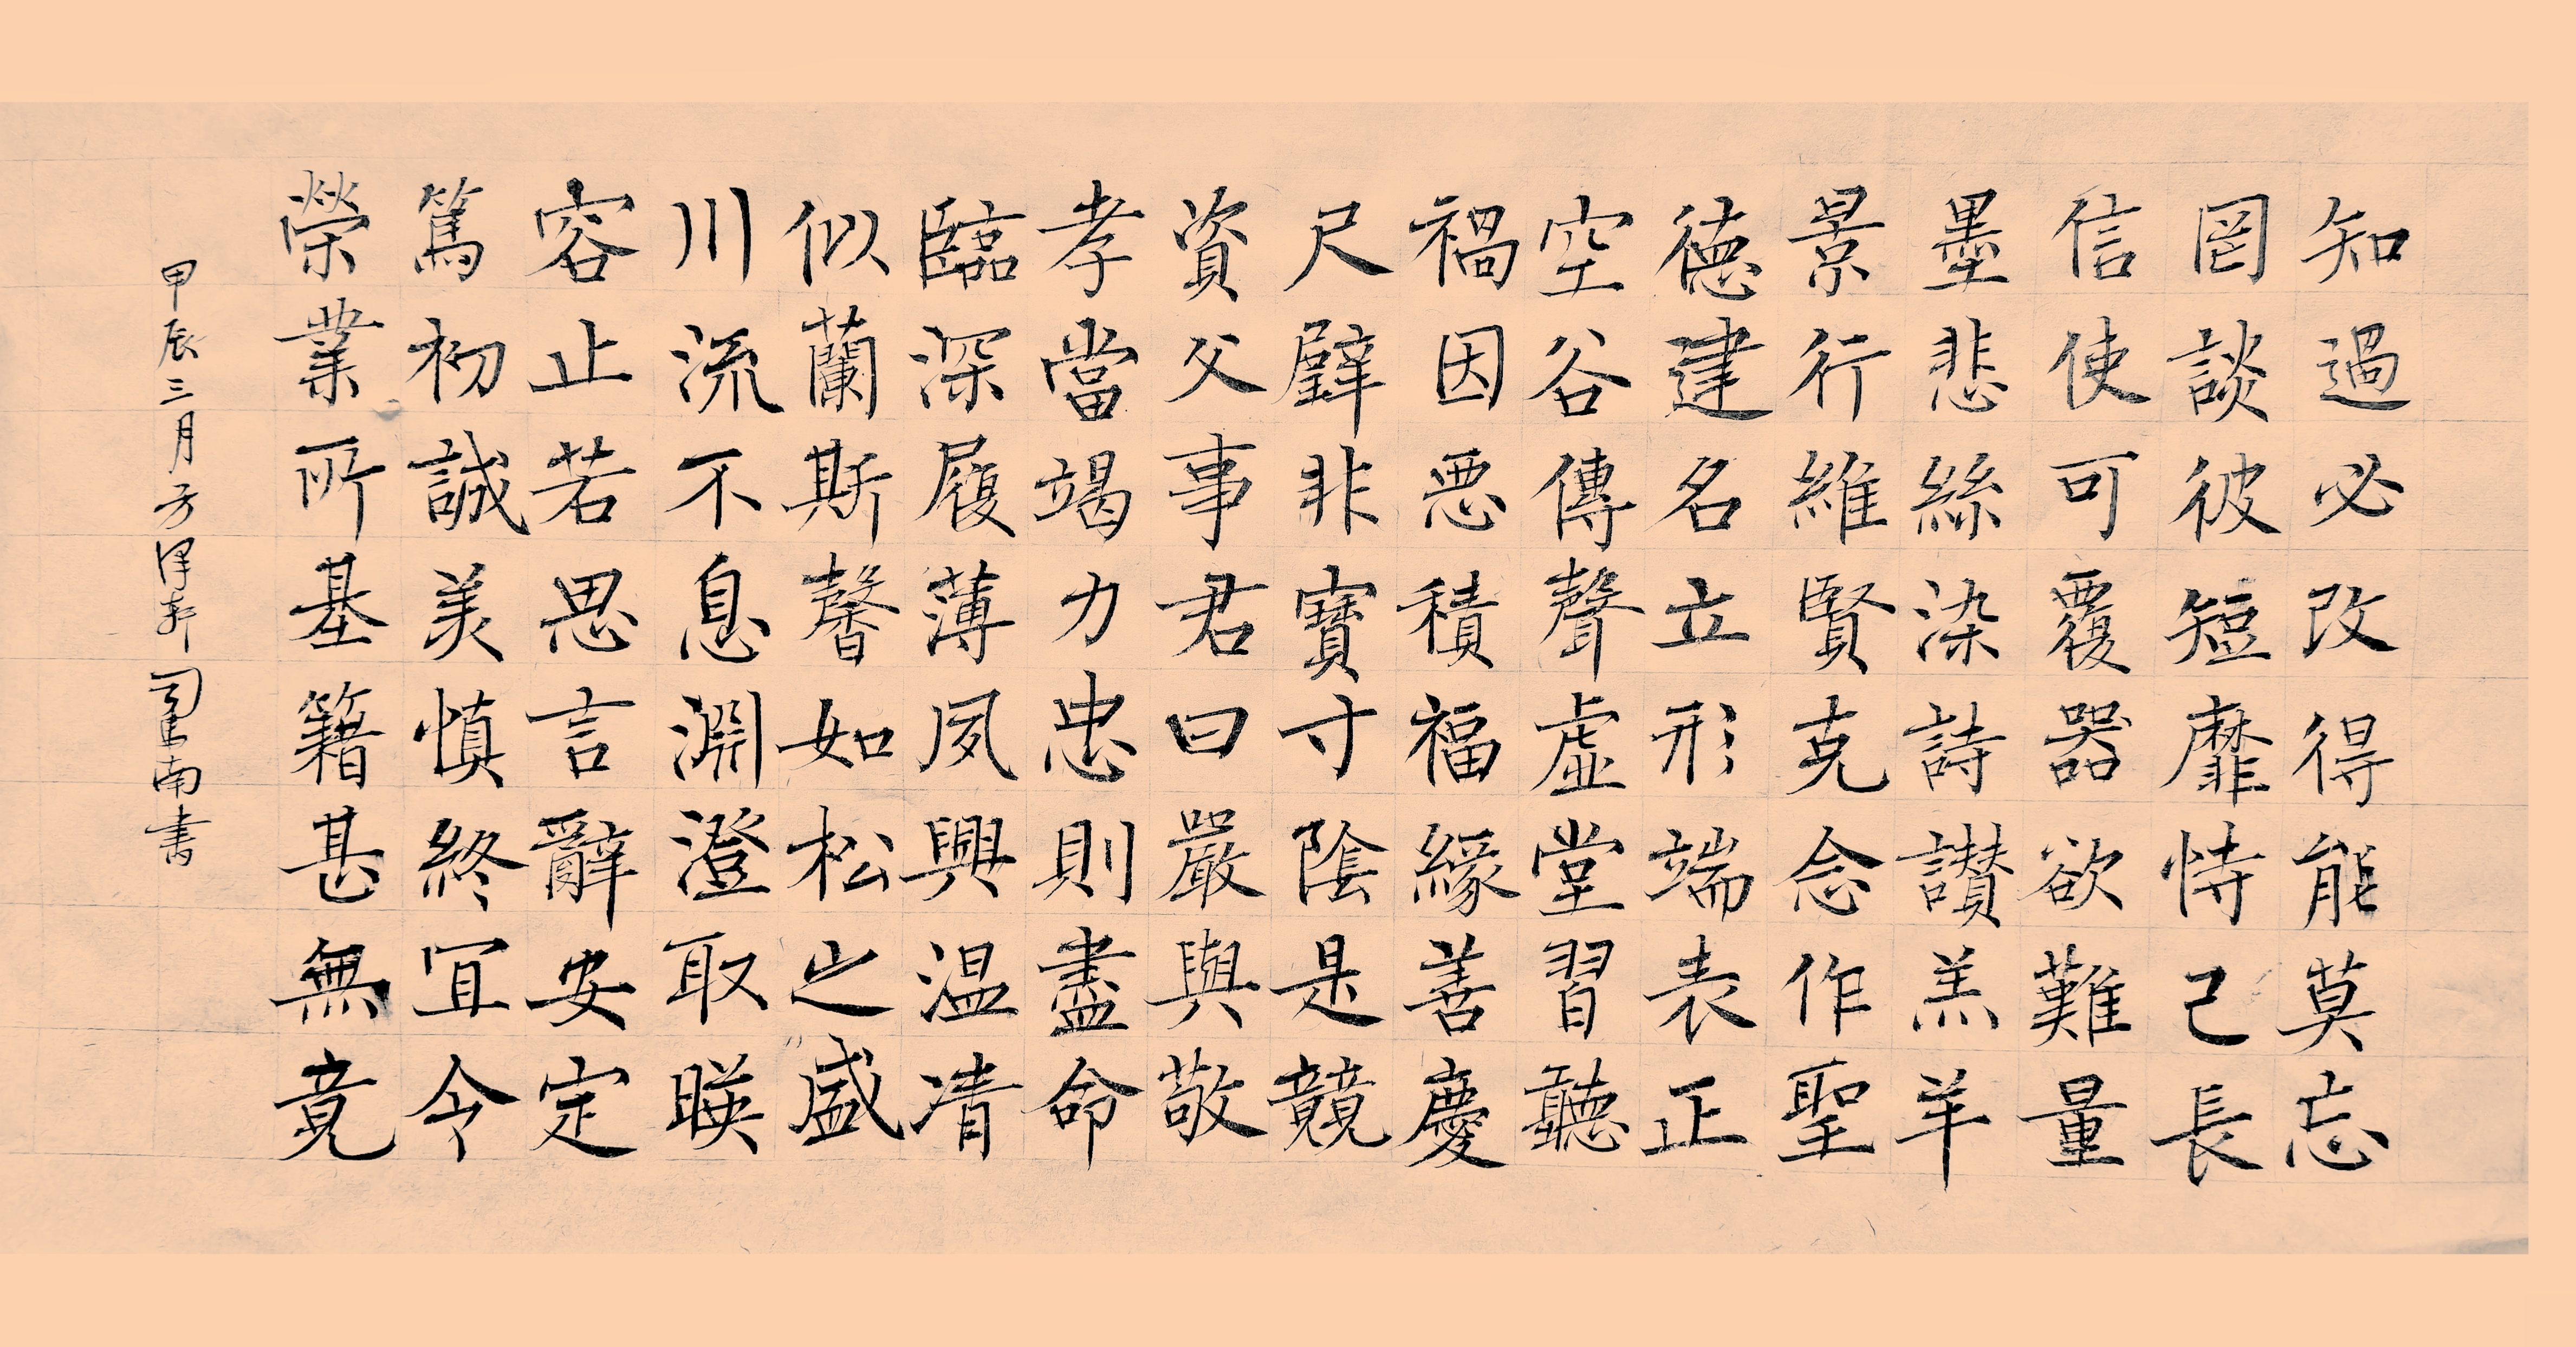 知過必改得能莫忘
罔談彼短靡恃己長
信使可覆器欲難量
墨悲絲染詩讃羔羊
景行維賢克念作聖
德建名立形端表正
空谷傳聲虛堂習聽
禍因惡積福緣善慶
尺璧非寶寸陰是競
資父事君曰嚴與敬
孝當竭力忠則盡命
臨深履薄夙興温凊
似蘭斯馨如松之盛
川流不息淵澄取暎
容止若思言辭安定
篤初誠美慎終宜令
榮業所基籍甚無竟
甲辰三月方澤軒 南書